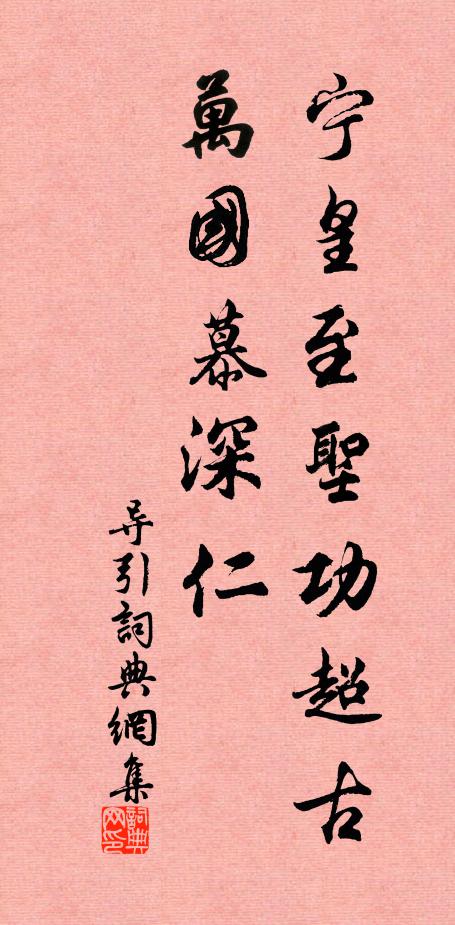 宁皇至聖功超古
萬國慕深仁
导引詞典網集
詞典网印